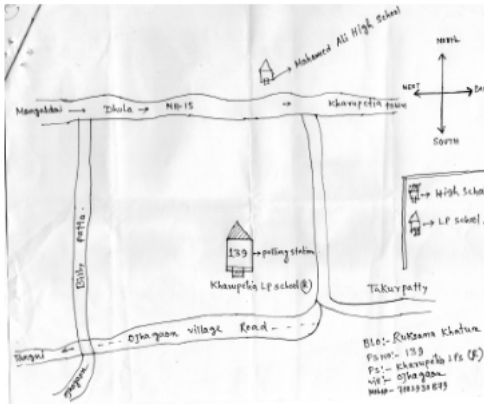 Mohamed Ali High School
NORTH
WEST
EAS
SOUTH
Mangaldai → Dhula → NH-15 → Kharupetia town
High Schoo
LP School
139 → polling station
Kharupetia LP School (R)
Takurpatty
Ojhagaon village Road
Tangni
BLO:- Ruksana Khatun
PS No:- 139
PS:- Kharupetia LPS (R)
vill:- Ojhagaon